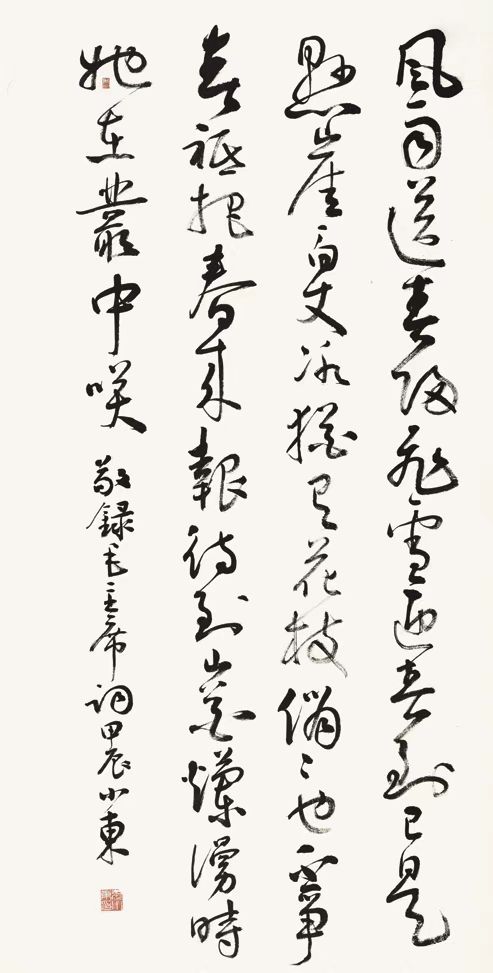 風雨送春歸飛雪迎春到已是
懸崖百丈冰猶有花枝俏々也不爭
春祗把春來報待到山花爛漫時
她在叢中咲 敬録毛主席詞甲辰小東